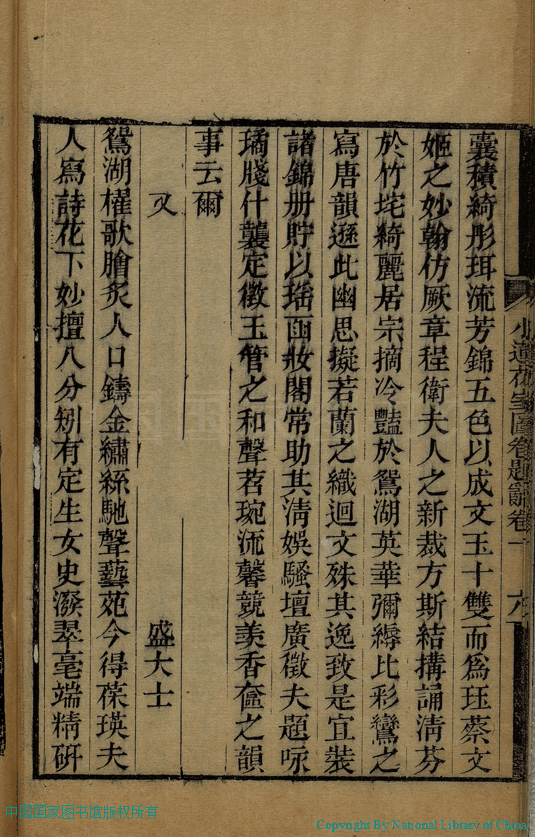 囊積綺彤珥流芳錦五色以成文玉十雙而爲珏蔡文
姬之妙翰仿厥章程衛夫人之新裁方斯結搆誦清芬
於竹垞綺麗居宗摘冷豔於鴛湖英華彌縟比彩鸞之
寫唐韻遜此幽思擬若蘭之織迴文殊其逸致是宜裝
諸錦册貯以瑶函妝閣常助其清娛騷壇廣徵夫題咏
璚牋什襲定徵玉管之和聲茗琬流馨競羨香奩之韻
事云爾
又
盛大士
鴛湖櫂歌膾炙人口鑄金繡絲馳聲藝苑今得葆瑛夫
人寫詩花下妙擅八分矧有定生女史潑翠毫端精硏
小蓮花室圖卷題辭卷一
六
中国国家图书馆版权所有
Copyright By National Library of China